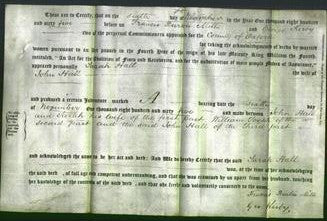 These are to Certify, that on the Sixth day of November in the Year One thousand eight hundred
and sixty five before us Francis
two of the perpetual Commissioners appointed for the County of
for taking the acknowledgments of deeds by married
women pursuant to an Act passed in the Fourth Year of the reign of his late Majesty King William the Fourth,
intituled, "An Act for the Abolition of Fines and Recoveries, and for the substitution of more simple Modes of Assurance,"
appeared personally Sarah Hall
John Hall
and produced a certain Indenture marked A bearing date the Sixth day
of November One thousand eight hundred and sixty five and made between John Hall
and his wife of the first part William of the
second part and the said John Hall of the third part
and acknowledged the same to be her act and deed. And We do hereby Certify that the said Sarah Hall
was, at the time of her acknowledging
the said deed, of full age and competent understanding, and that she was examined by us apart from her husband, touching
her knowledge of the contents of the said deed, and that she freely and voluntarily consented to the same.